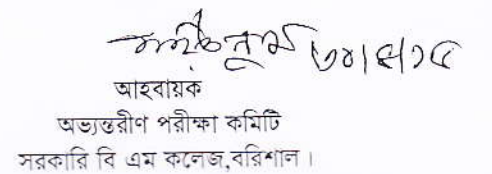 আহবায়ক
অভ্যন্তরীণ পরীক্ষা কমিটি
সরকারি বি এম কলেজ,বরিশাল।